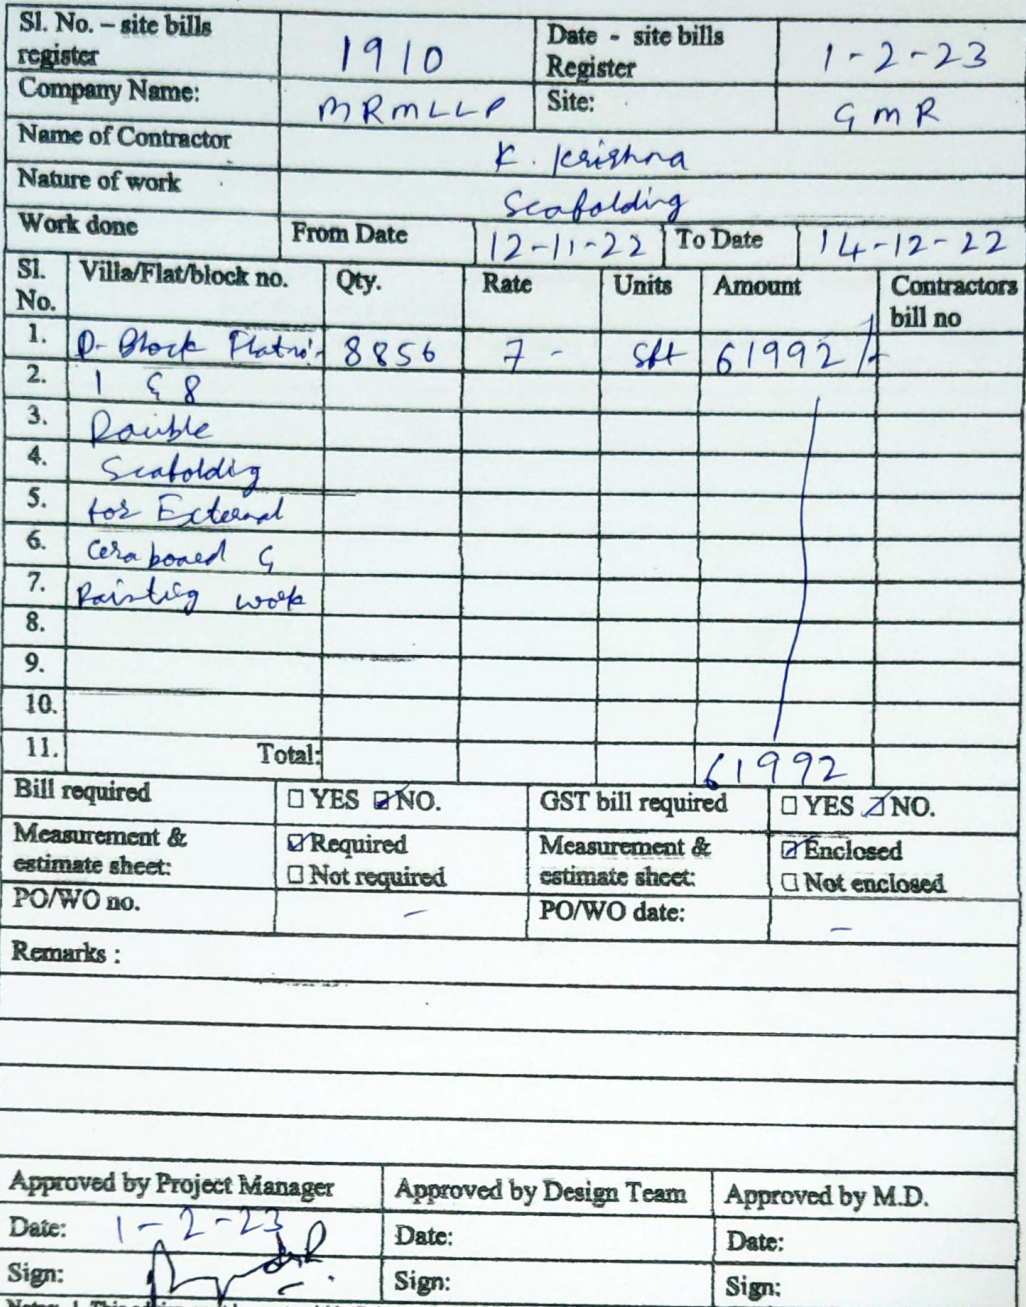 Sl. No. – site bills register 1910 Date - site bills Register 1-2-23
Company Name: MRMLLP Site: GMR
Name of Contractor K. Krishna
Nature of work Scafolding
Work done From Date 12-11-22 To Date 14-12-22
Sl. No. Villa/Flat/block no. Qty. Rate Units Amount Contractors bill no
1. D-Block Flat no:- 8856 7 - Sft 61992/-
2. 1 & 8
3. Double
4. Scafolding
5. for External
6. Cera board &
7. Painting work
8.
9.
10.
11. Total: 61992
Bill required ☐ YES ☑ NO. GST bill required ☐ YES ☑ NO.
Measurement & estimate sheet: ☑ Required ☐ Not required Measurement & estimate sheet: ☑ Enclosed ☐ Not enclosed
PO/WO no. – PO/WO date: –
Remarks :
Approved by Project Manager Approved by Design Team Approved by M.D.
Date: 1-2-23 Date: Date:
Sign: Sign: Sign: